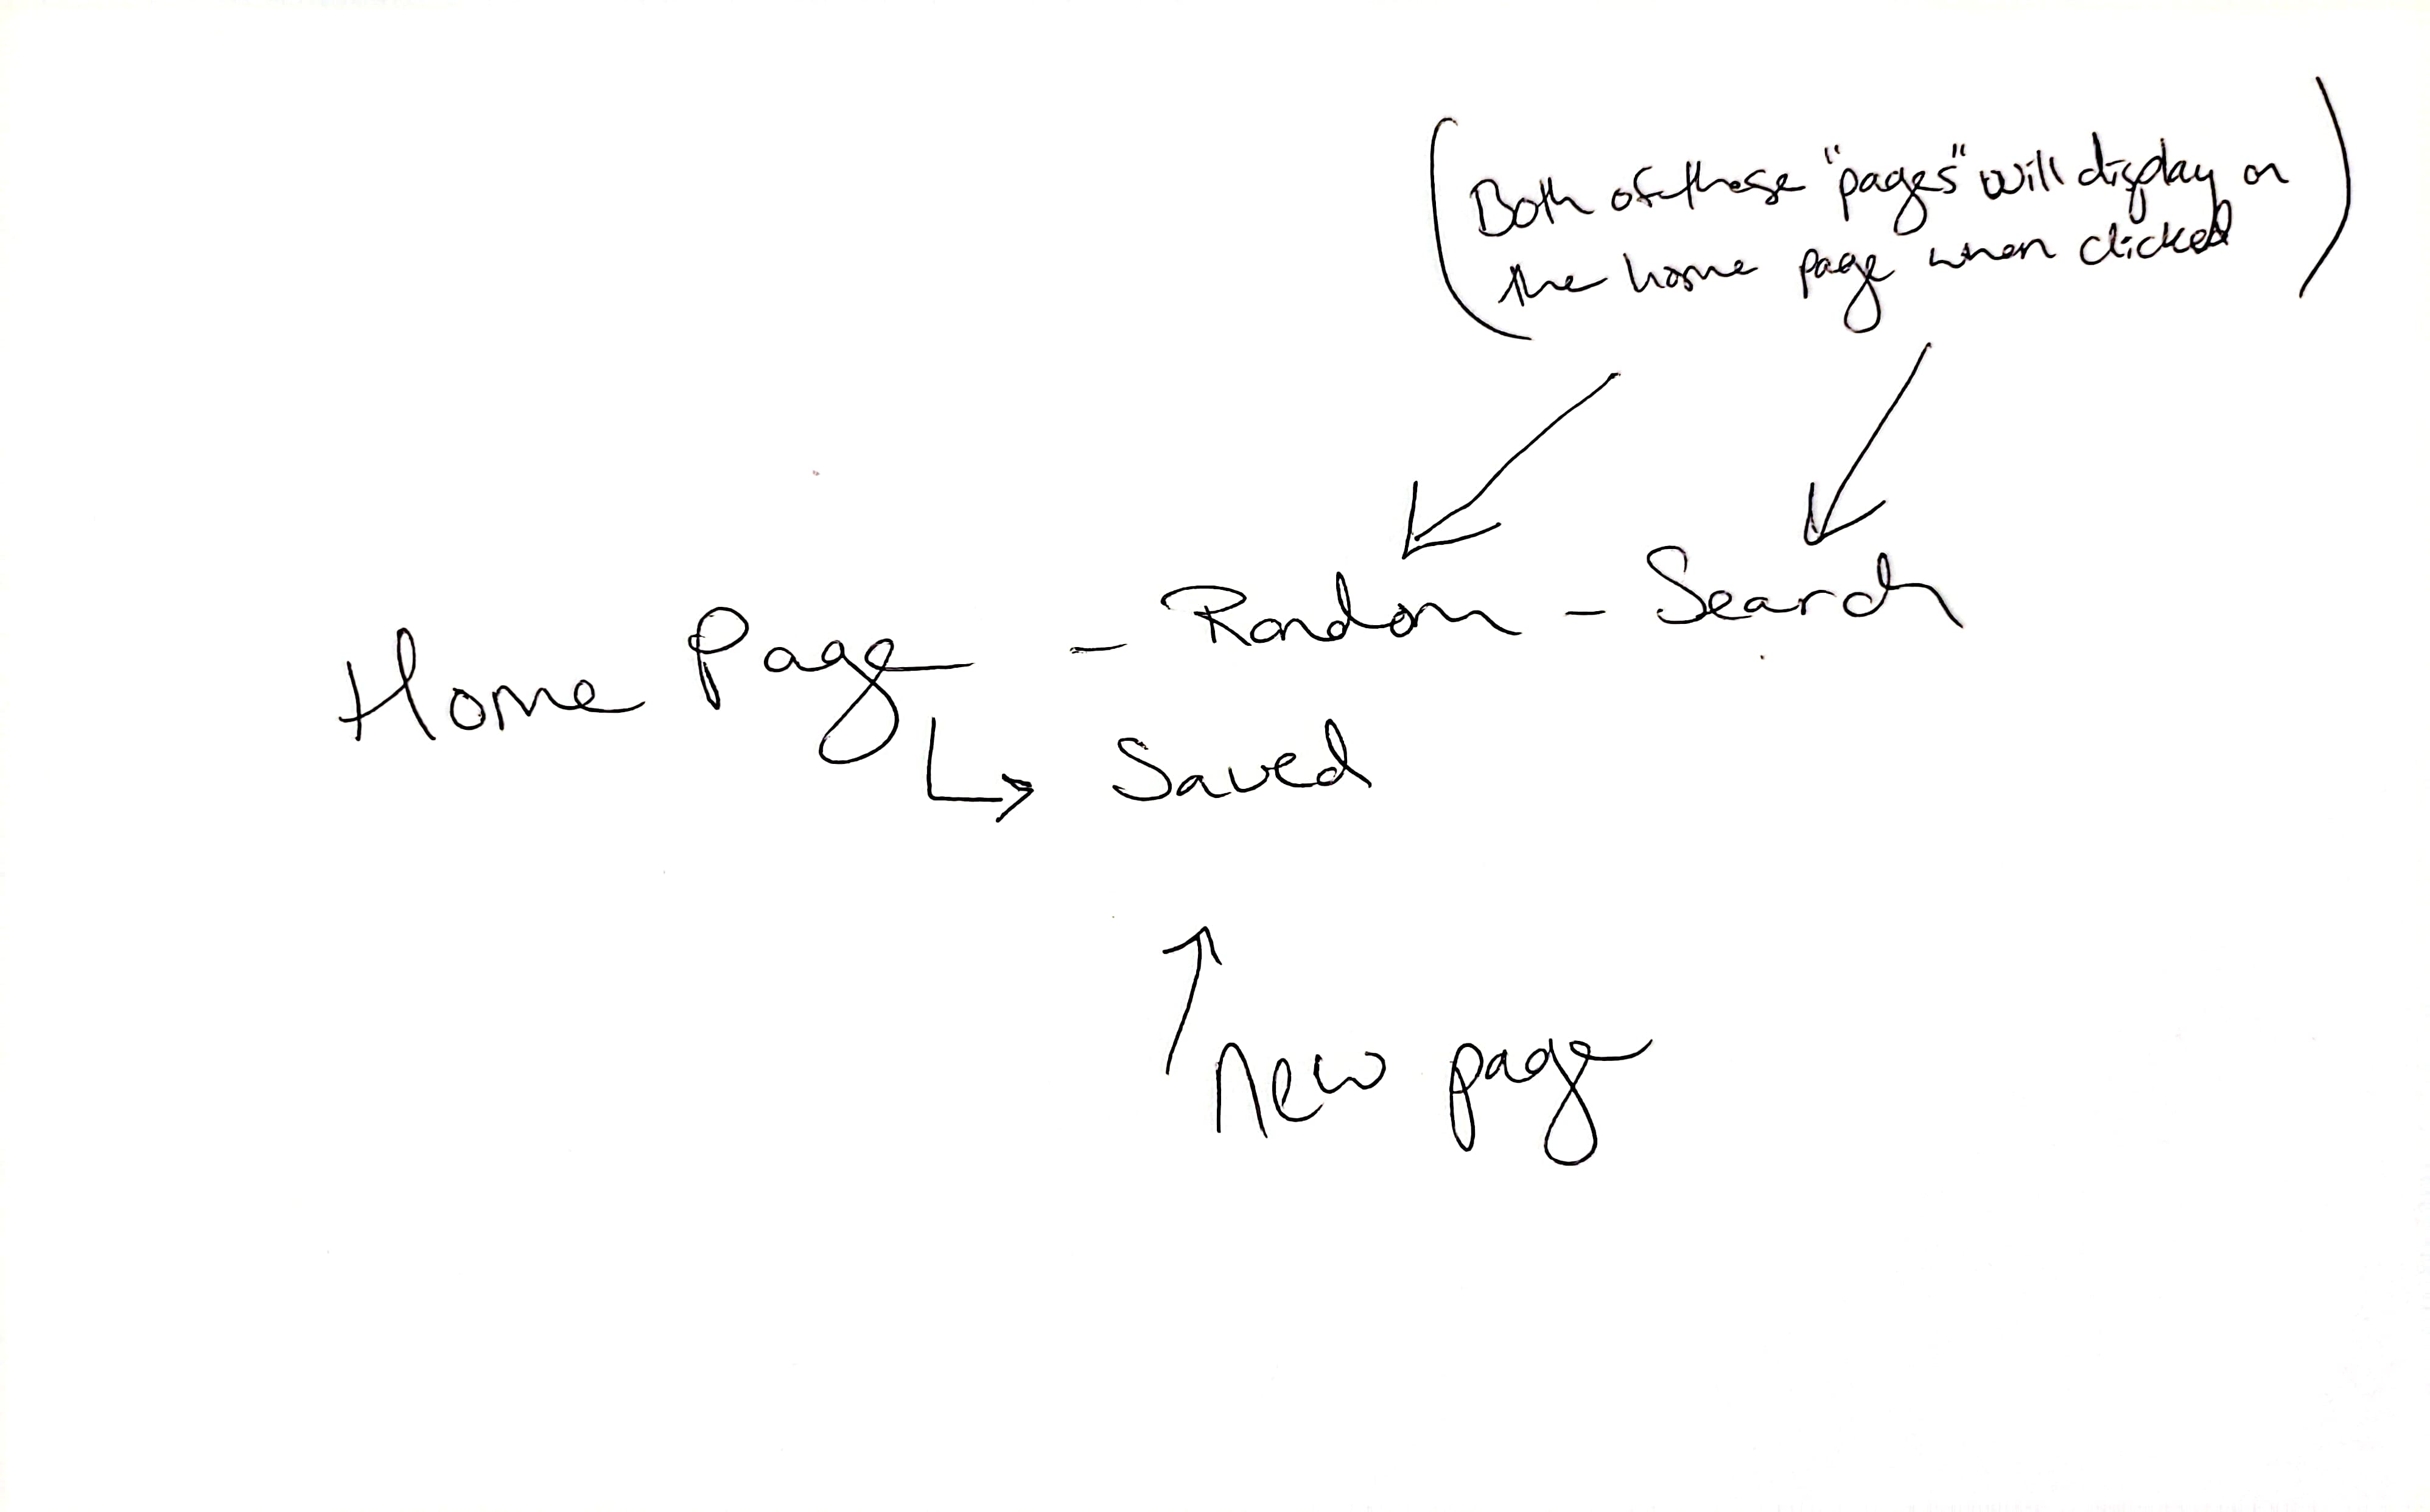 (Both of these "pages" will display on
the home page when clicked)
Home Page - Random - Search
↳ Saved
↑ New page